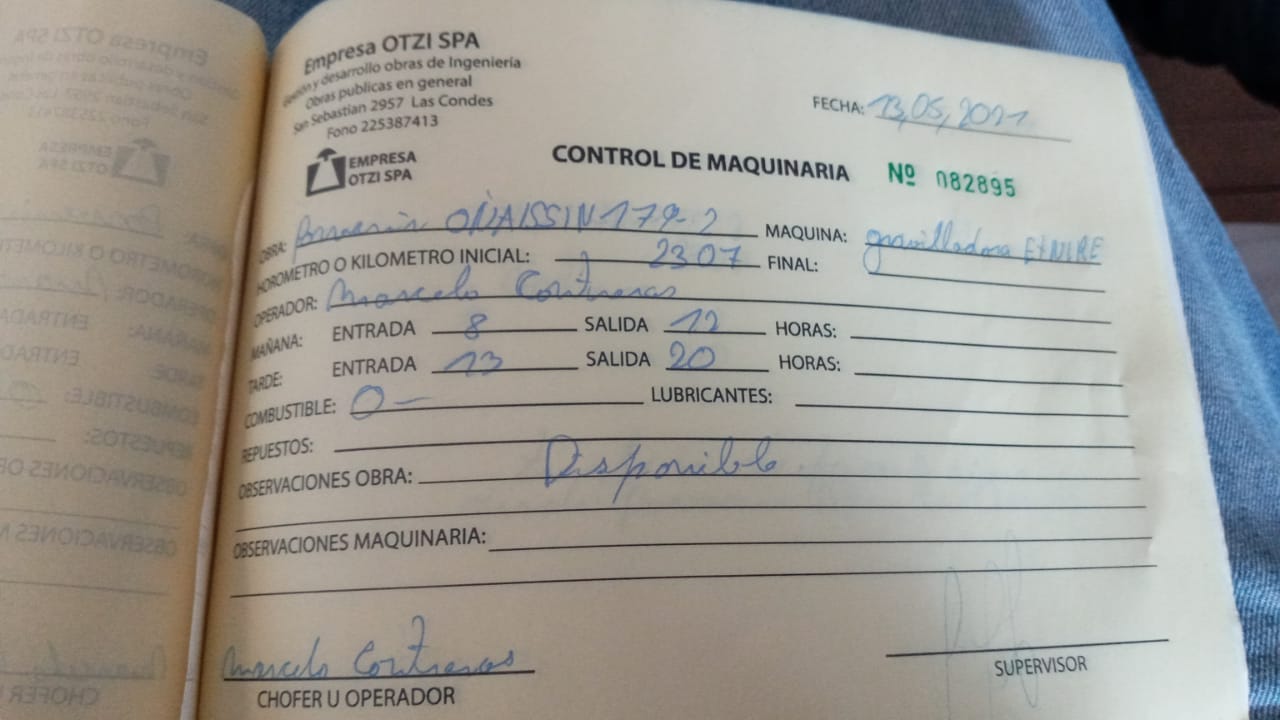 Empresa OTZI SPA
Gestión y desarrollo obras de Ingeniería
Obras publicas en general
San Sebastian 2957 Las Condes
Fono 225387413
EMPRESA
OTZI SPA
FECHA: 13,05,2021
CONTROL DE MAQUINARIA Nº 082895
OBRA: 179-2 MAQUINA: gravilladora
HOROMETRO O KILOMETRO INICIAL: 2307 FINAL:
OPERADOR: Marcelo Contreras
MAÑANA: ENTRADA 8 SALIDA 12 HORAS:
TARDE: ENTRADA 13 SALIDA 20 HORAS:
COMBUSTIBLE: 0- LUBRICANTES:
REPUESTOS:
OBSERVACIONES OBRA: Disponible
OBSERVACIONES MAQUINARIA:
Marcelo Contreras
CHOFER U OPERADOR
SUPERVISOR